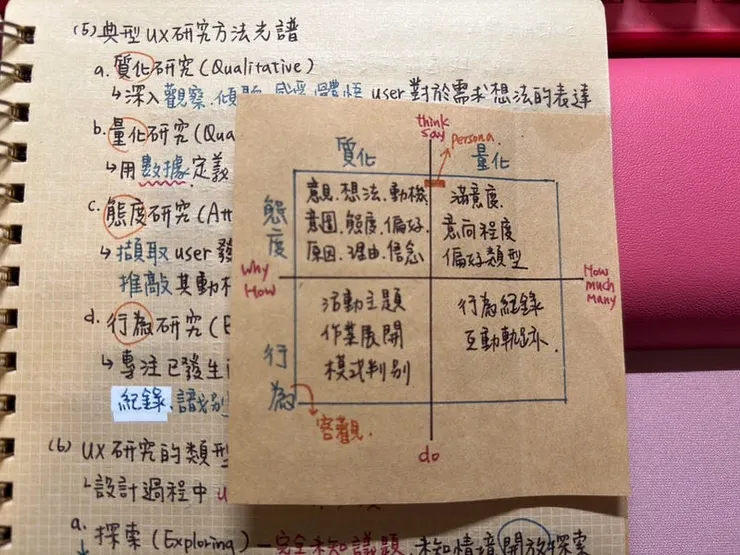 (5) 典型 UX 研究方法光譜
a. 質化研究 (Qualitative)
↳ 深入觀察、傾聽、感受、體悟 user 對於需求想法的表達
b. 量化研究 (Qua
↳ 用數據定義
c. 態度研究 (Att
↳ 擷取 user 發
推敲其動
d. 行為研究 (B
↳ 專注已發生
紀錄、識別
(6) UX 研究的類型
↳ 設計過程中 u
a. 探索 (Exploring) — 完全未知議題、未知情境開放探索
think
say
persona
質化
量化
態度
意見、想法、動機
意圖、態度、偏好
原因、理由、信念
滿意度
意向程度
偏好類型
why
How
How
much
many
行為
活動主題
作業展開
模式判別
行為紀錄
互動軌跡
客觀.
do